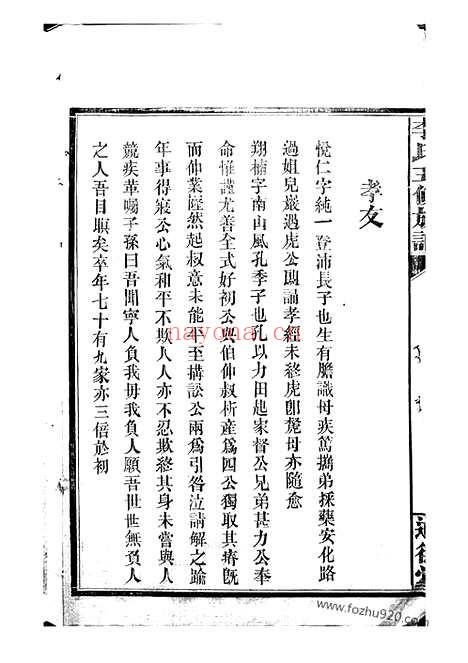 李氏五修族譜
孝友
悅仁字純一登沛長子也生有膽識母疾篤擕弟採藥安化路
過姐兒巖遇虎公卽誦孝經未終虎卽斃母亦隨愈
翔楠字南山風孔季子也孔以力田起家督公兄弟甚力公奉
命惟謹尤善全式好初公與伯仲叔析產為四公獨取其瘠旣
而仲業蹙然起叔意未能平至搆訟公兩為引咎泣請解之踰
年事得寢公心氣和平不欺人人亦不忍欺終其身未嘗與人
競疾革囑子孫曰吾聞寧人負我毋我負人願吾世世無負人
之人吾目瞑矣卒年七十有九家亦三倍於初
nayona.cn
www.fozhu920.com